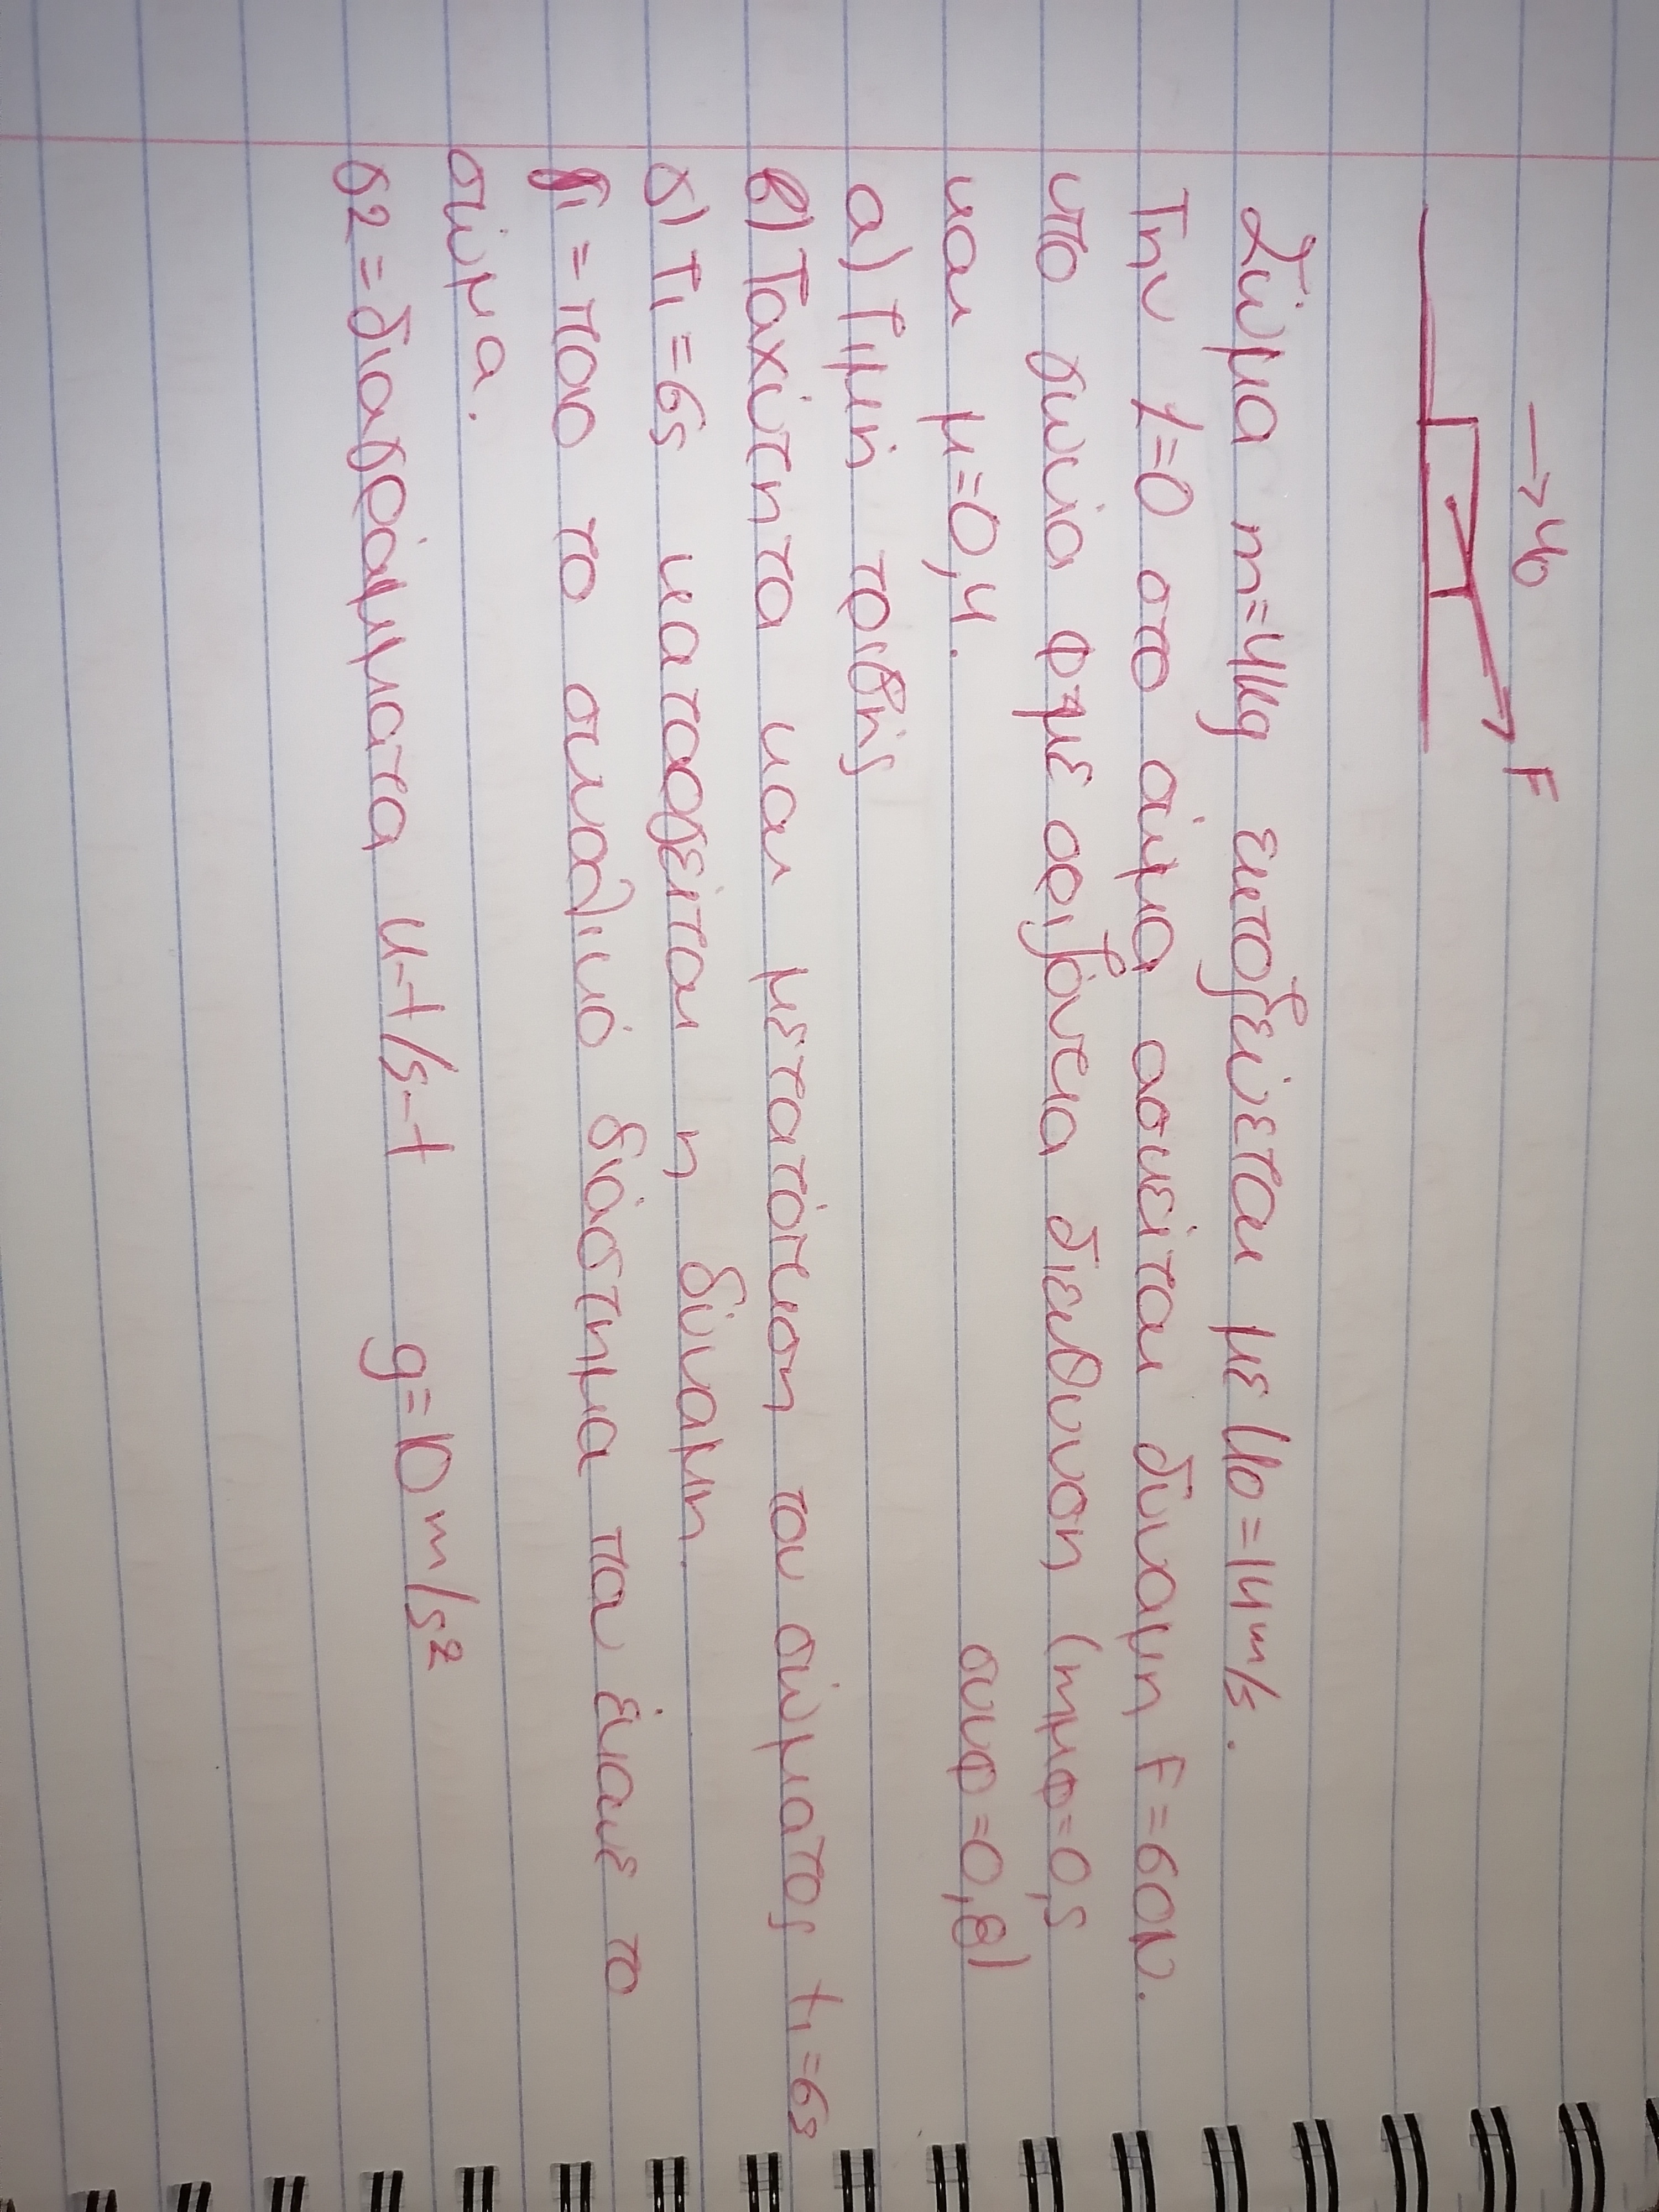 →υ₀
F
Σώμα m=4kg εκτοξεύεται με υ₀=14m/s.
Την t=0 στο σώμα ασκείται δύναμη F=60N.
υπο γωνία φ με οριζόντια διεύθυνση (ημφ=0,5
συνφ=0,8)
και μ=0,4.
α) Τιμή τριβής
β) Ταχύτητα και μετατόπιση του σώματος t₁=6s
γ) T₁=6s καταργείται η δύναμη.
γ₁=ποιο το συνολικό διάστημα που έκανε το
σώμα.
γ2=διαγράμματα υ-t/s-t g=10m/s²